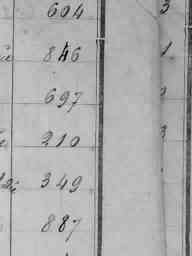 604 3
846 1
697
210 3
349
887